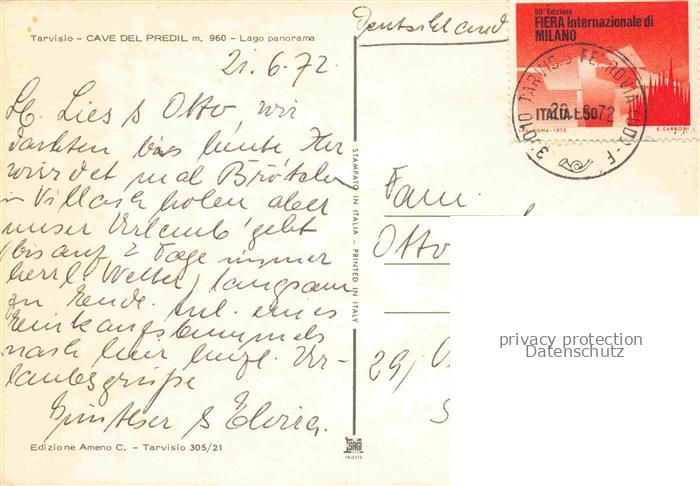 Tarvisio - CAVE DEL PREDIL m. 960 - Lago panorama
21.6.72
Lb. Lies & Otto, wir
dachten bis heute Ihr
würdet mal Brötchen
in Villach holen aber
unser Urlaub geht
(bis auf 2 Tage immer
herrl. Wetter) langsam
zu Ende. eines
Einkaufsbummels
nach hier herzl. Ur-
laubsgrüße
Günther & Elvira.
Edizione Ameno C. - Tarvisio 305/21
STAMPATO IN ITALIA - PRINTED IN ITALY
SAGI
TRIESTE
Deutschland
50ª Edizione
FIERA Internazionale di
MILANO
ITALIA L.50
ROMA-1972
E. CARBONI
TARVISIO FERROVIA (UD)
6.72
Fam.
Otto
29,
privacy protection
Datenschutz